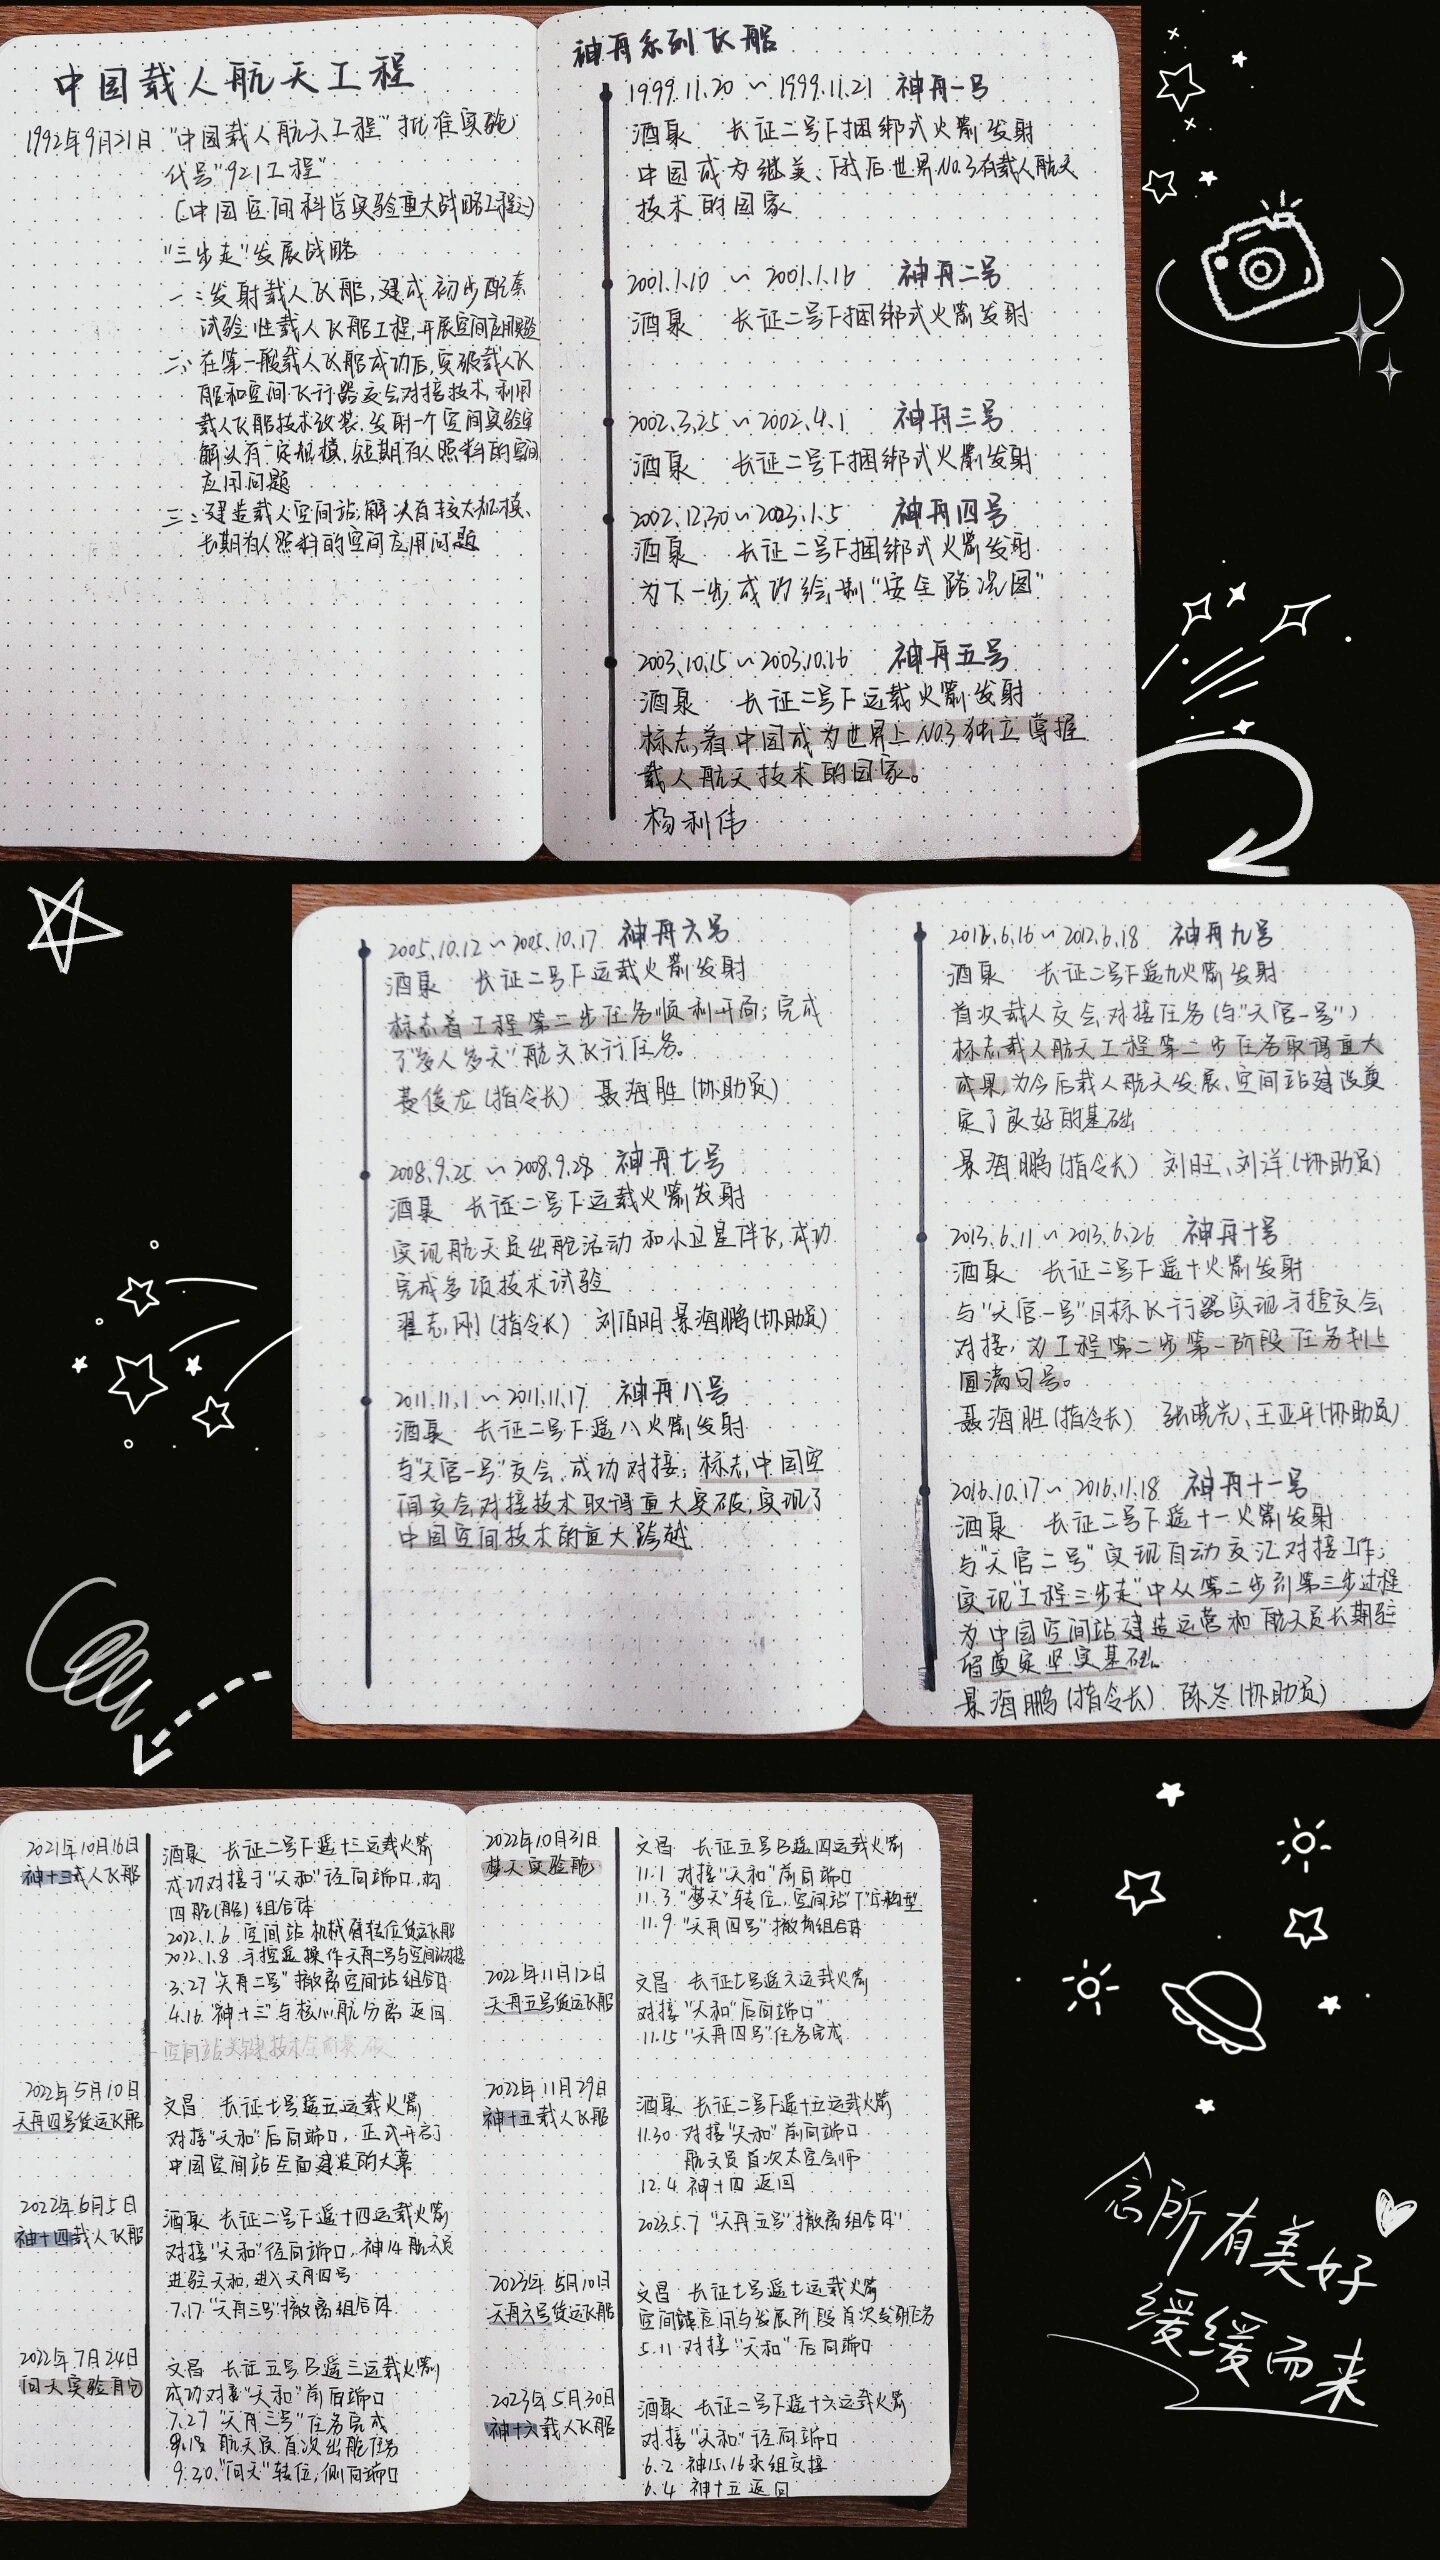 中国载人航天工程
1992年9月21日 "中国载人航天工程"批准实施
代号"921工程"
(中国空间科学实验重大战略工程之一)
"三步走"发展战略
一:发射载人飞船,建成初步配套
试验性载人飞船工程,开展空间应用实验
二:在第一艘载人飞船成功后,突破载人飞
船和空间飞行器交会对接技术,利用
载人飞船技术改装、发射一个空间实验室
解决有一定规模、短期有人照料的空间
应用问题
三:建造载人空间站,解决有较大规模、
长期有人照料的空间应用问题
神舟系列飞船
1999.11.20 ~ 1999.11.21 神舟一号
酒泉 长征二号F捆绑式火箭发射
中国成为继美、俄后世界NO.3有载人航天
技术的国家
2001.1.10 ~ 2001.1.16 神舟二号
酒泉 长征二号F捆绑式火箭发射
2002.3.25 ~ 2002.4.1 神舟三号
酒泉 长征二号F捆绑式火箭发射
2002.12.30 ~ 2003.1.5 神舟四号
酒泉 长征二号F捆绑式火箭发射
为下一步成功绘制"安全路况图"
2003.10.15 ~ 2003.10.16 神舟五号
酒泉 长征二号F运载火箭发射
标志着中国成为世界上NO.3独立掌握
载人航天技术的国家。
杨利伟
2005.10.12 ~ 2005.10.17 神舟六号
酒泉 长征二号F运载火箭发射
标志着工程第二步任务顺利开局;完成
了"多人多天"航天飞行任务。
费俊龙(指令长) 聂海胜(协助员)
2008.9.25 ~ 2008.9.28 神舟七号
酒泉 长征二号F运载火箭发射
实现航天员出舱活动和小卫星伴飞,成功
完成多项技术试验
翟志刚(指令长) 刘伯明 景海鹏(协助员)
2011.11.1 ~ 2011.11.17 神舟八号
酒泉 长征二号F遥八火箭发射
与"天宫一号"交会,成功对接;标志中国空
间交会对接技术取得重大突破,实现了
中国空间技术的重大跨越
2012.6.16 ~ 2012.6.18 神舟九号
酒泉 长征二号F遥九火箭发射
首次载人交会对接任务(与"天宫一号")
标志载人航天工程第二步任务取得重大
成果,为今后载人航天发展、空间站建设奠
定了良好的基础
景海鹏(指令长) 刘旺、刘洋(协助员)
2013.6.11 ~ 2013.6.26 神舟十号
酒泉 长征二号F遥十火箭发射
与"天宫一号"目标飞行器实现手控交会
对接,为工程第二步第一阶段任务划上
圆满句号。
聂海胜(指令长) 张晓光、王亚平(协助员)
2016.10.17 ~ 2016.11.18 神舟十一号
酒泉 长征二号F遥十一火箭发射
与"天宫二号"实现自动交汇对接工作;
实现"工程三步走"中从第二步到第三步过程
为中国空间站建造运营和航天员长期驻
留奠定坚实基础。
景海鹏(指令长) 陈冬(协助员)
2021年10月16日
神十三载人飞船
酒泉 长征二号F遥十三运载火箭
成功对接于"天和"径向端口,构
四舱(船)组合体
2022.1.6 空间站机械臂转位货运飞船
2022.1.8 手控遥操作天舟二号与空间站对接
3.27 "天舟二号"撤离空间站组合体
4.16 "神十三"与核心舱分离 返回
空间站关键技术全面突破
2022年5月10日
天舟四号货运飞船
文昌 长征七号遥五运载火箭
对接"天和"后向端口,正式开启了
中国空间站全面建造的大幕
2022年6月5日
神十四载人飞船
酒泉 长征二号F遥十四运载火箭
对接"天和"径向端口,神14航天员
进驻天和,进入天舟四号
7.17 "天舟三号"撤离组合体
2022年7月24日
问天实验舱
文昌 长征五号B遥三运载火箭
成功对接"天和"前向端口
7.27 "天舟三号"任务完成
航天员首次出舱任务
9.30 "问天"转位,侧向端口
2022年10月31日
梦天实验舱
文昌 长征五号B遥四运载火箭
11.1 对接"天和"前向端口
11.3 "梦天"转位,空间站"T"字构型
11.9 "天舟四号"撤离组合体
2022年11月12日
天舟五号货运飞船
文昌 长征七号遥六运载火箭
对接"天和"后向端口"
11.15 "天舟四号"任务完成
2022年11月29日
神十五载人飞船
酒泉 长征二号F遥十五运载火箭
11.30 对接"天和"前向端口
航天员首次太空会师
12.4 神十四 返回
2023.5.7 "天舟五号"撤离组合体"
2023年5月10日
天舟六号货运飞船
文昌 长征七号遥七运载火箭
空间站应用与发展阶段首次发射任务
5.11 对接"天和"后向端口
2023年5月30日
神十六载人飞船
酒泉 长征二号F遥十六运载火箭
对接"天和"径向端口
6.2 神15.16乘组交接
6.4 神十五返回
念所有美好
缓缓而来